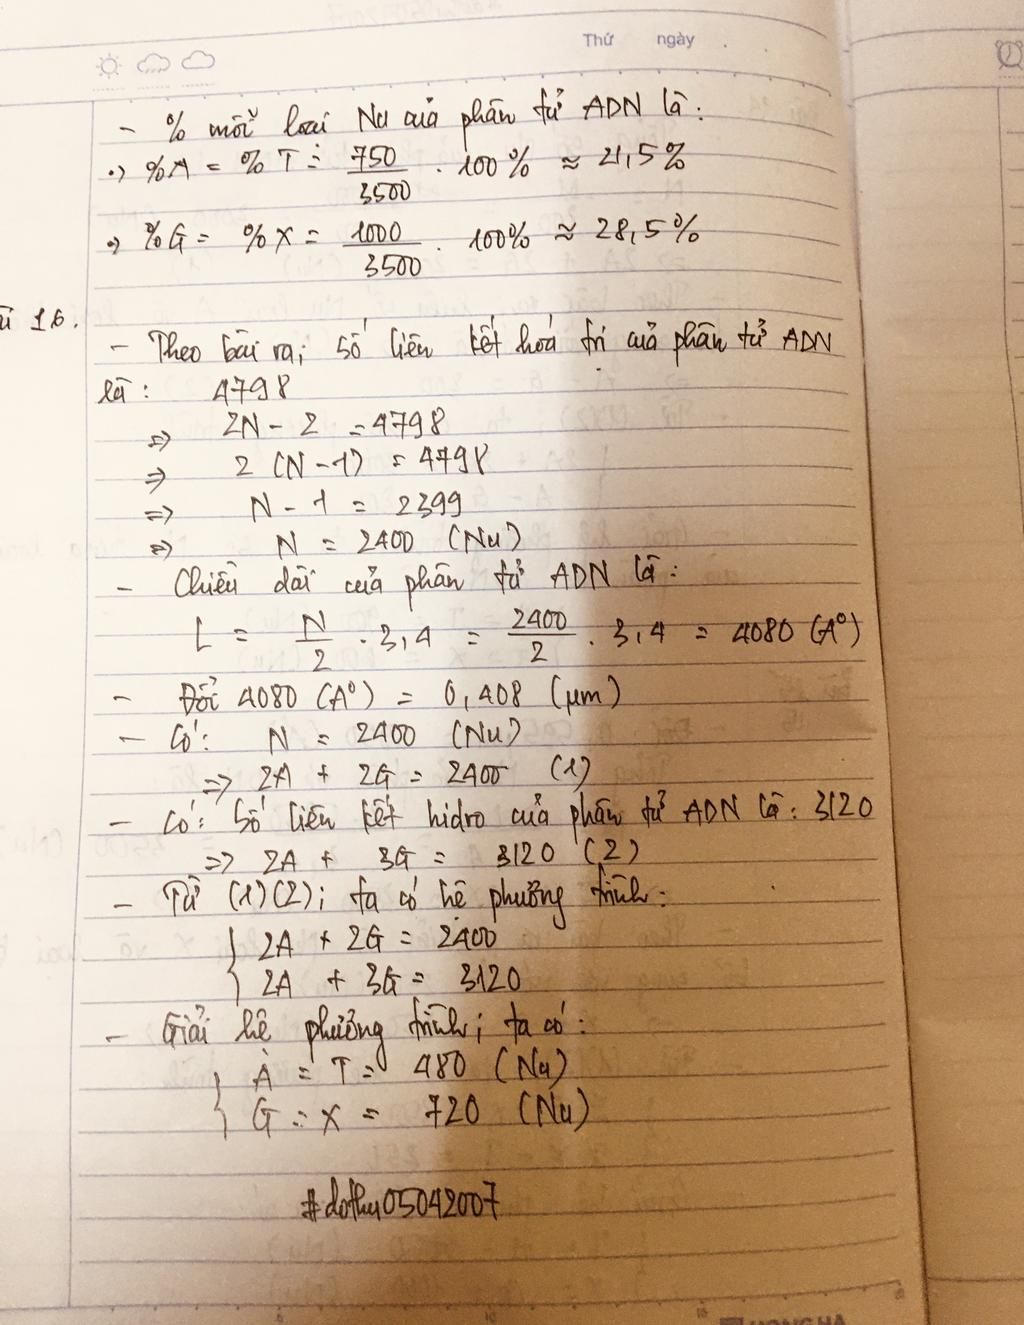 Thứ ngày
- % mỗi loại Nu của phân tử ADN là:
=> %A = %T = 750/3500 . 100% ≈ 21,5%
=> %G = %X = 1000/3500 . 100% ≈ 28,5%
16.
- Theo bài ra; số liên kết hoá trị của phân tử ADN
là: 4798
=> 2N - 2 = 4798
=> 2 (N - 1) = 4798
=> N - 1 = 2399
=> N = 2400 (Nu)
- Chiều dài của phân tử ADN là:
L = N/2 . 3,4 = 2400/2 . 3,4 = 4080 (A°)
- Đổi 4080 (A°) = 0,408 (μm)
- Có: N = 2400 (Nu)
=> 2A + 2G = 2400 (1)
- Có: Số liên kết hidro của phân tử ADN là: 3120
=> 2A + 3G = 3120 (2)
- Từ (1)(2); ta có hệ phương trình:
{ 2A + 2G = 2400
2A + 3G = 3120
- Giải hệ phương trình; ta có:
{ A = T = 480 (Nu)
G = X = 720 (Nu)
#dothu05042007
HONG HA